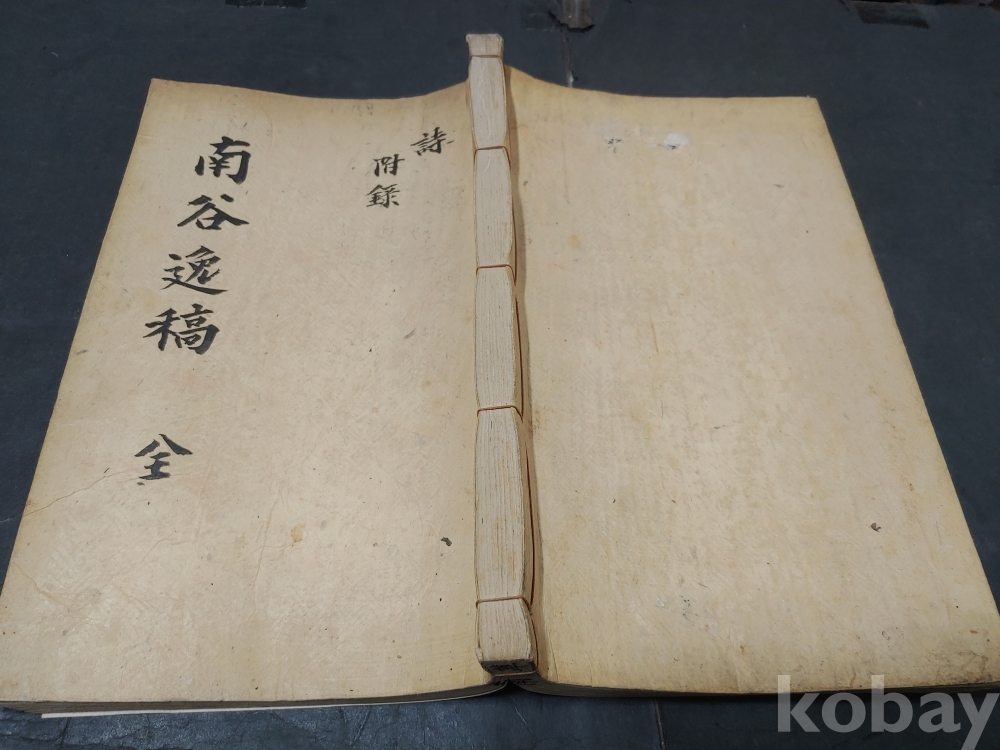 詩
附錄
南谷逸稿 全
kobay